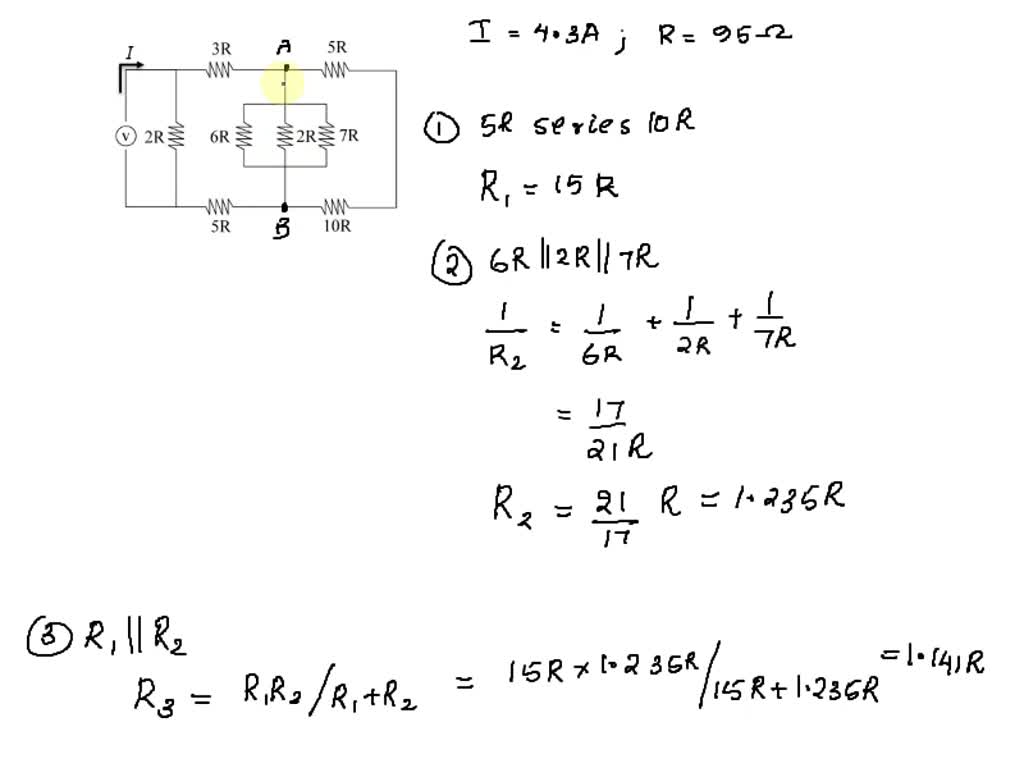 I = 4.3A ; R = 95Ω
I 3R A 5R
V 2R 6R 2R 7R
5R B 10R
① 5R series 10R
R₁ = 15R
② 6R || 2R || 7R
1/R₂ = 1/6R + 1/2R + 1/7R
= 17/21R
R₂ = 21/17 R = 1.235R
③ R₁ || R₂
R₃ = R₁R₂/R₁+R₂ = 15R × 1.235R/15R+1.235R = 1.141R